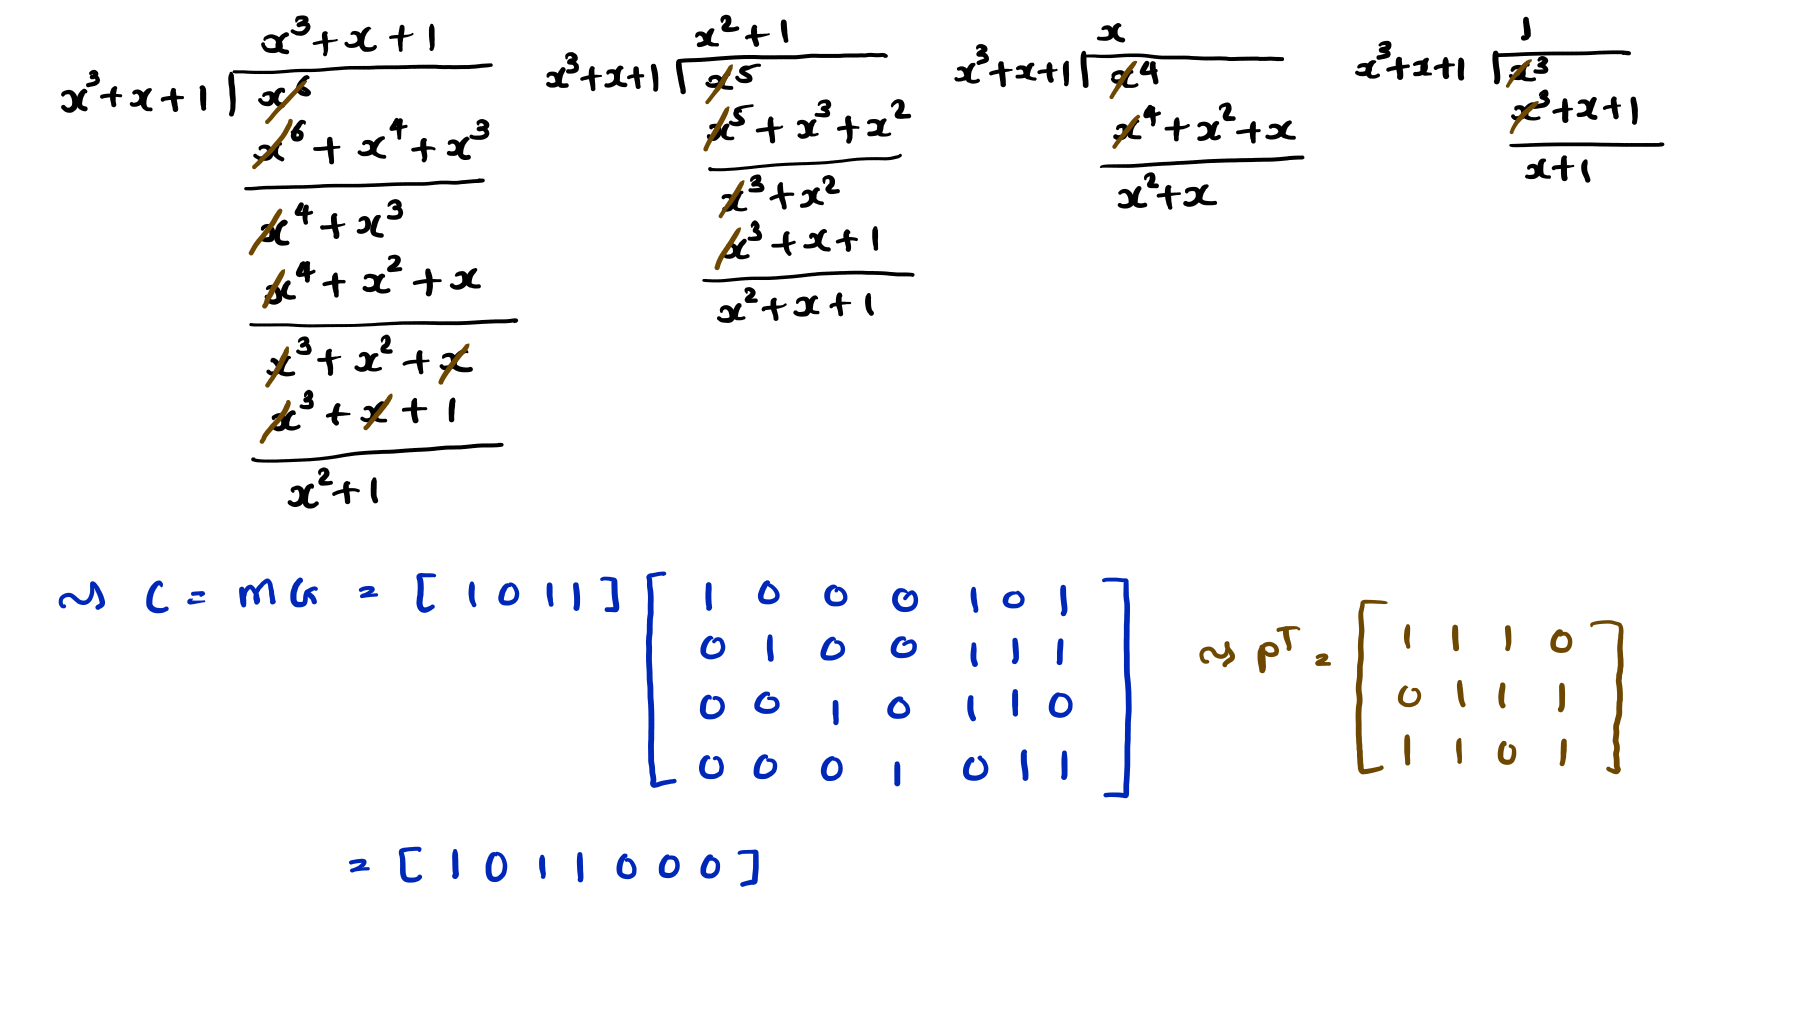 x³+x+1
x³+x+1 x⁶
x⁶+x⁴+x³
x⁴+x³
x⁴+x²+x
x³+x²+x
x³+x+1
x²+1
x²+1
x³+x+1 x⁵
x⁵+x³+x²
x³+x²
x³+x+1
x²+x+1
x
x³+x+1 x⁴
x⁴+x²+x
x²+x
1
x³+x+1 x³
x³+x+1
x+1
⇝ C = mG = [ 1 0 1 1 ] [ 1 0 0 0 1 0 1
0 1 0 0 1 1 1
0 0 1 0 1 1 0
0 0 0 1 0 1 1 ]
= [ 1 0 1 1 0 0 0 ]
⇝ Pᵀ = [ 1 1 1 0
0 1 1 1
1 1 0 1 ]